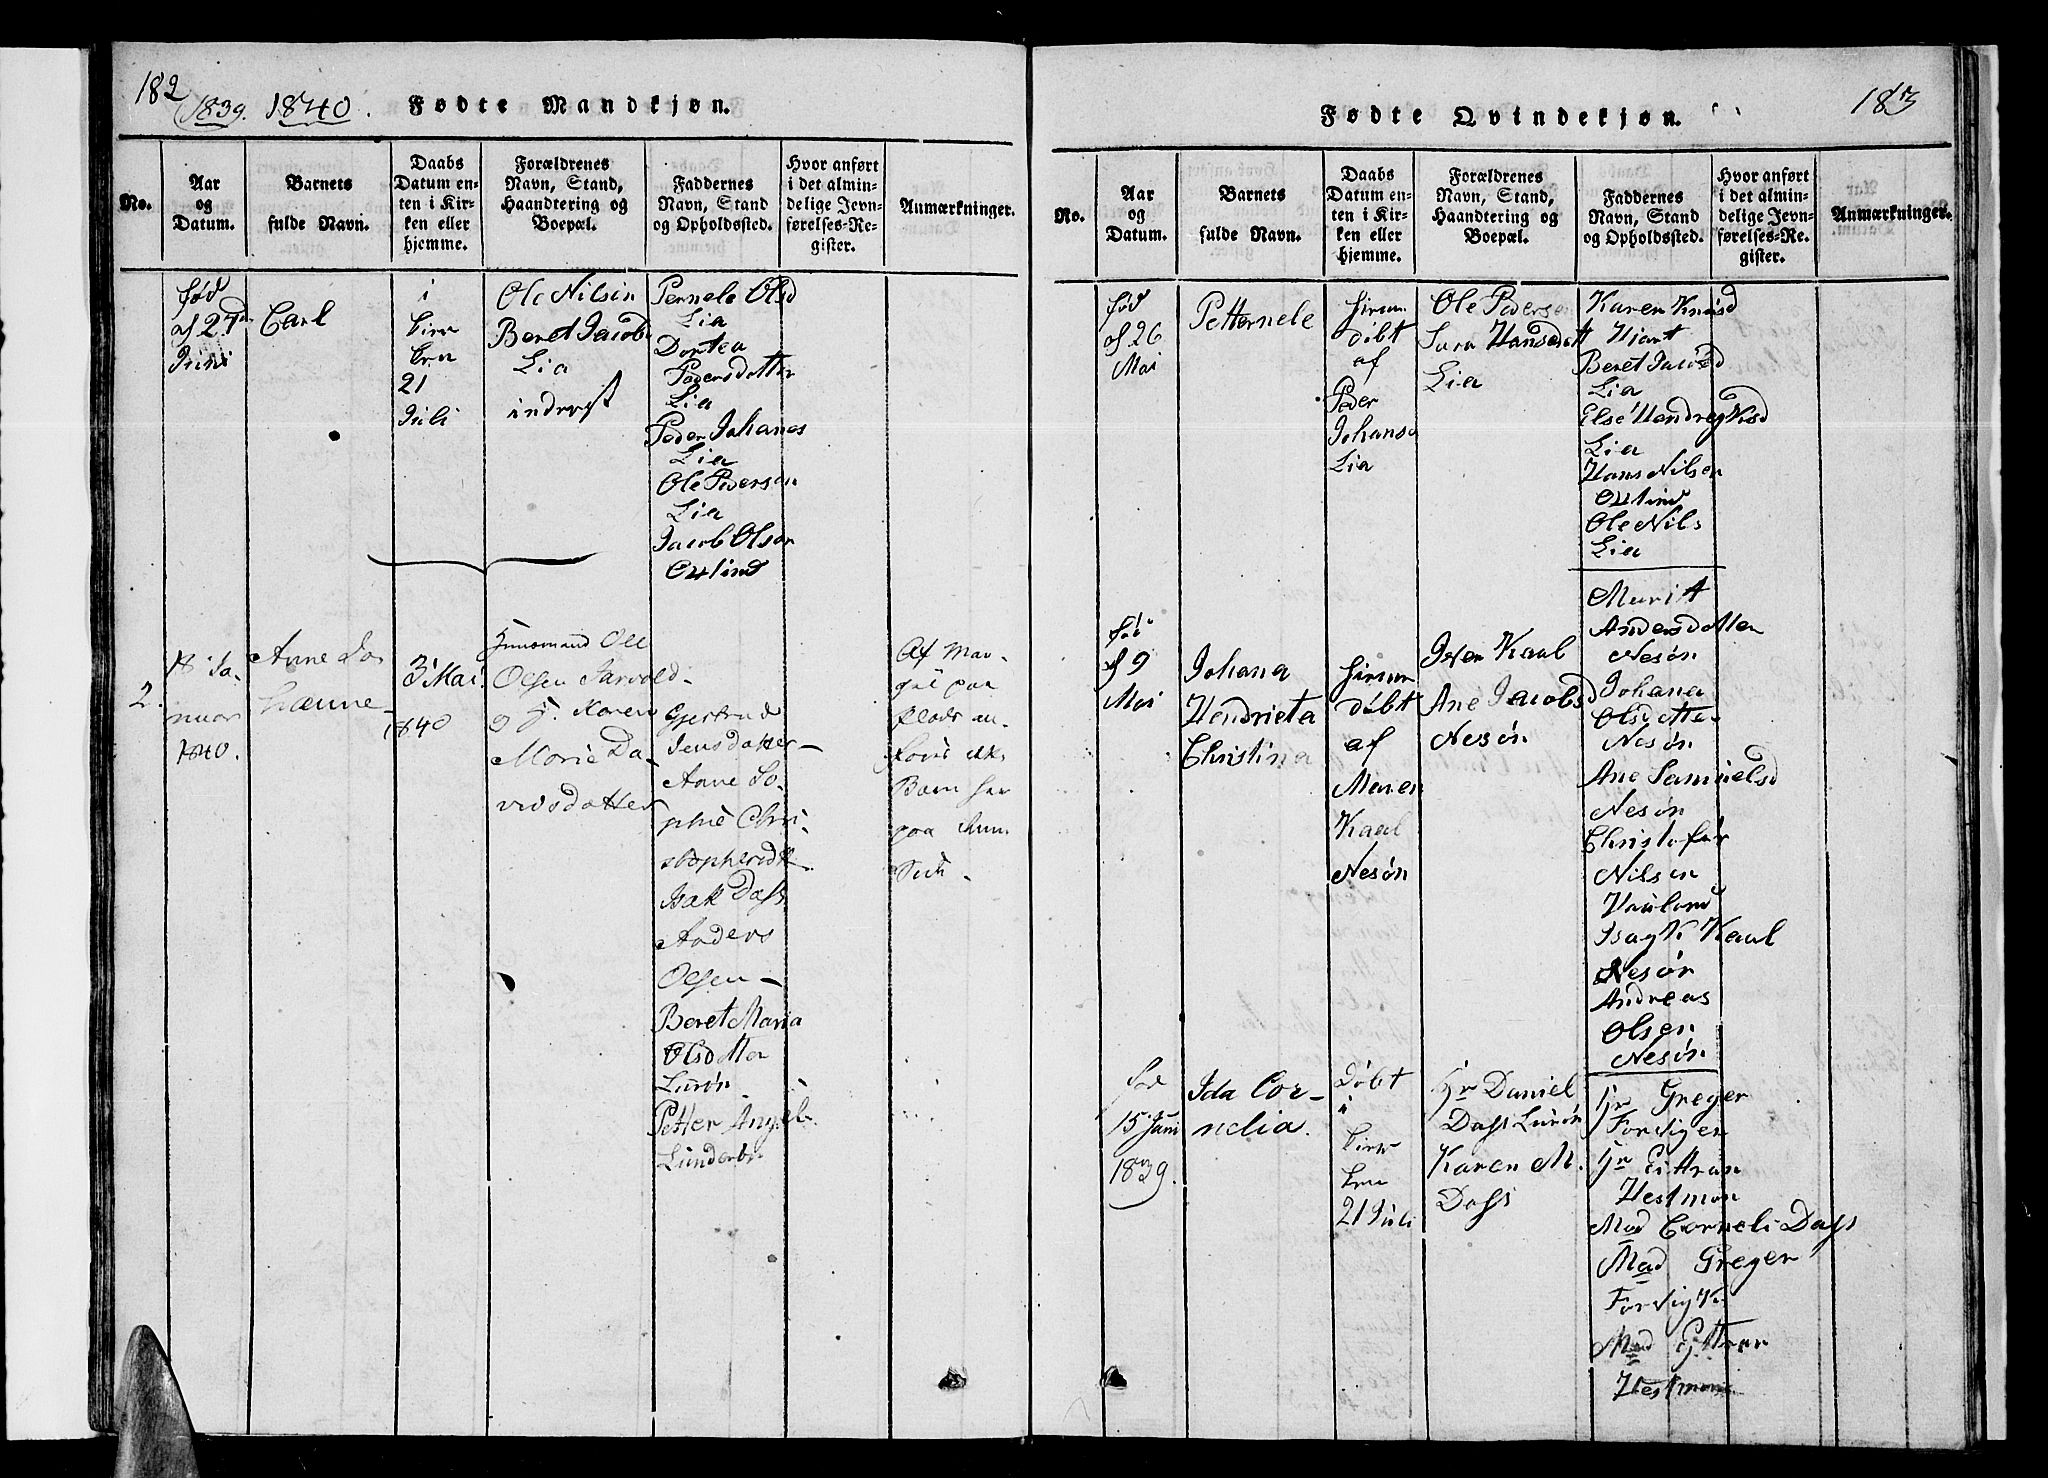 182
1839. 1840. Fødte Mandkjøn.
No.
Aar
og
Datum.
Barnets
fulde Navn.
Daabs
Datum en-
ten i Kir-
ken eller
hjemme.
Forældrenes
Navn, Stand,
Haandtering og
Boepæl.
Faddernes
Navn, Stand
og Opholdssted.
Hvor anført
i det almin-
delige Jevn-
førelses-Re-
gister.
Anmærkninger.
fød
27d
Juni
Carl
i
kirr
ken
21
Juli
Ole Nilsen
Beret Jacobs
Lia
inderst
Pernele Olsd
Lia
Dortea
Pedersdatter
Lia
Peder Johanes
Lia
Ole Pedersen
Lia
Jacob Olsen
2.
18 Ja-
nuar
1840.
Anne Jo-
hanne
3 Mai
1840
Huusmand Ole
Olsen
Karen
Marie Da-
vidsdatter
Gjertrud
Jensdatter
Anne So-
phie Chri-
stophersdtr
Isak Dass
Anders
Olsen
Beret Maria
Olsdatter
Lurøn
Petter Angel
Af Man-
gel paa
Plads an-
føres dette
Barn her
paa denne
Side.
183
Fødte Qvindekjøn.
No.
Aar
og
Datum.
Barnets
fulde Navn.
Daabs
Datum en-
ten i Kir-
ken eller
hjemme.
Forældrenes
Navn, Stand,
Haandtering og
Boepæl.
Faddernes
Navn, Stand
og Opholdssted.
Hvor anført
i det almin-
delige Jevn-
førelses-Re-
gister.
Anmærkninger.
fød
26
Mai
Petternele
hiem
døbt
af
Peder
Johanse
Lia
Ole Pederse
Sara Hansdatt
Lia
Karen Knusd
Hjart
Beret Jacobsd
Lia
Else Hendregksd
Lia
Hans Nilsen
Ole Nils
Lia
fød
9
Mai
Johana
Hendrieta
Christina
hiem
døbt
af
Maren
Kaal
Nesøn
Iver Kaal
Ane Jacobsd
Nesøn
Marit
Andersdatter
Nesøn
Johana
Olsdatter
Nesøn
Ane Samuelsd
Nesøn
Christofer
Nilsen
Hauland
Isagk Kaal
Nesøn
Andreas
Olsen
Nesøn
fød
15 Juni
1839.
Ida Cor-
nelia.
Døbt
i
kirr
ken
21 Juli
Hr Daniel
Dass Lurøn
Karen M.
Dass
Hr Greger
Hr
Hestmon
Mad Corneli Dass
Mad Greger
Mad
Hestmon